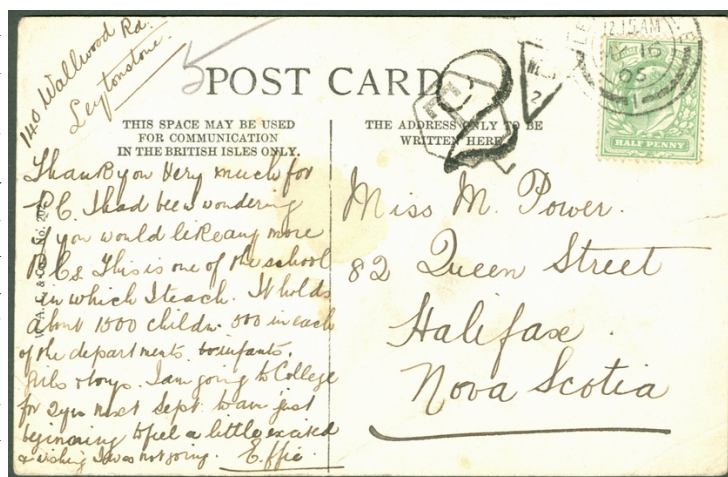 140 Wallwood Rd.
Leytonstone.
POST CARD
THIS SPACE MAY BE USED
FOR COMMUNICATION
IN THE BRITISH ISLES ONLY.
THE ADDRESS ONLY TO BE
WRITTEN HERE
12.15 AM
16
05
HALF PENNY
2
Thank you very much for
P.C. I had been wondering
if you would like any more
P.Cs This is one of the school
in which I teach. It holds
about 1500 childn. 500 in each
of the departments infants,
girls & boys. I am going to College
for 2 yrs next Sept. & am just
beginning to feel a little excited
& wishing I was not going. Effie.
Miss M. Power.
82 Queen Street
Halifax.
Nova Scotia